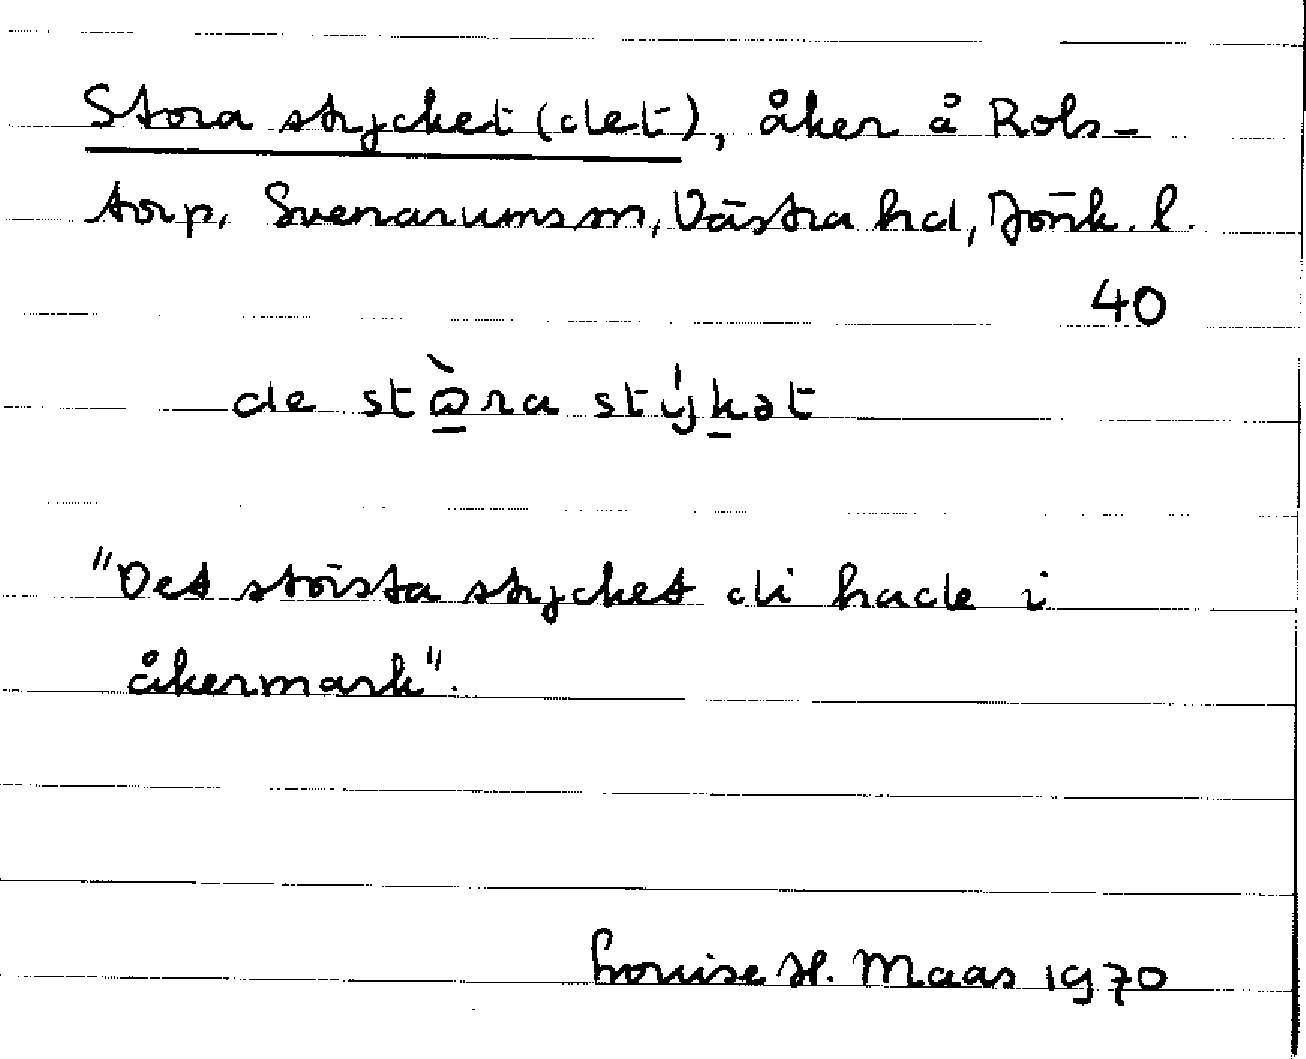 Stora stycket (det), åker å Rols-
torp, Svenarums sn, Västra hd, Jönk. l.
40
de stɷ̠̀ra stý̠kət
"Det största stycket di hade i
åkermark".
Louise H. Maas 1970